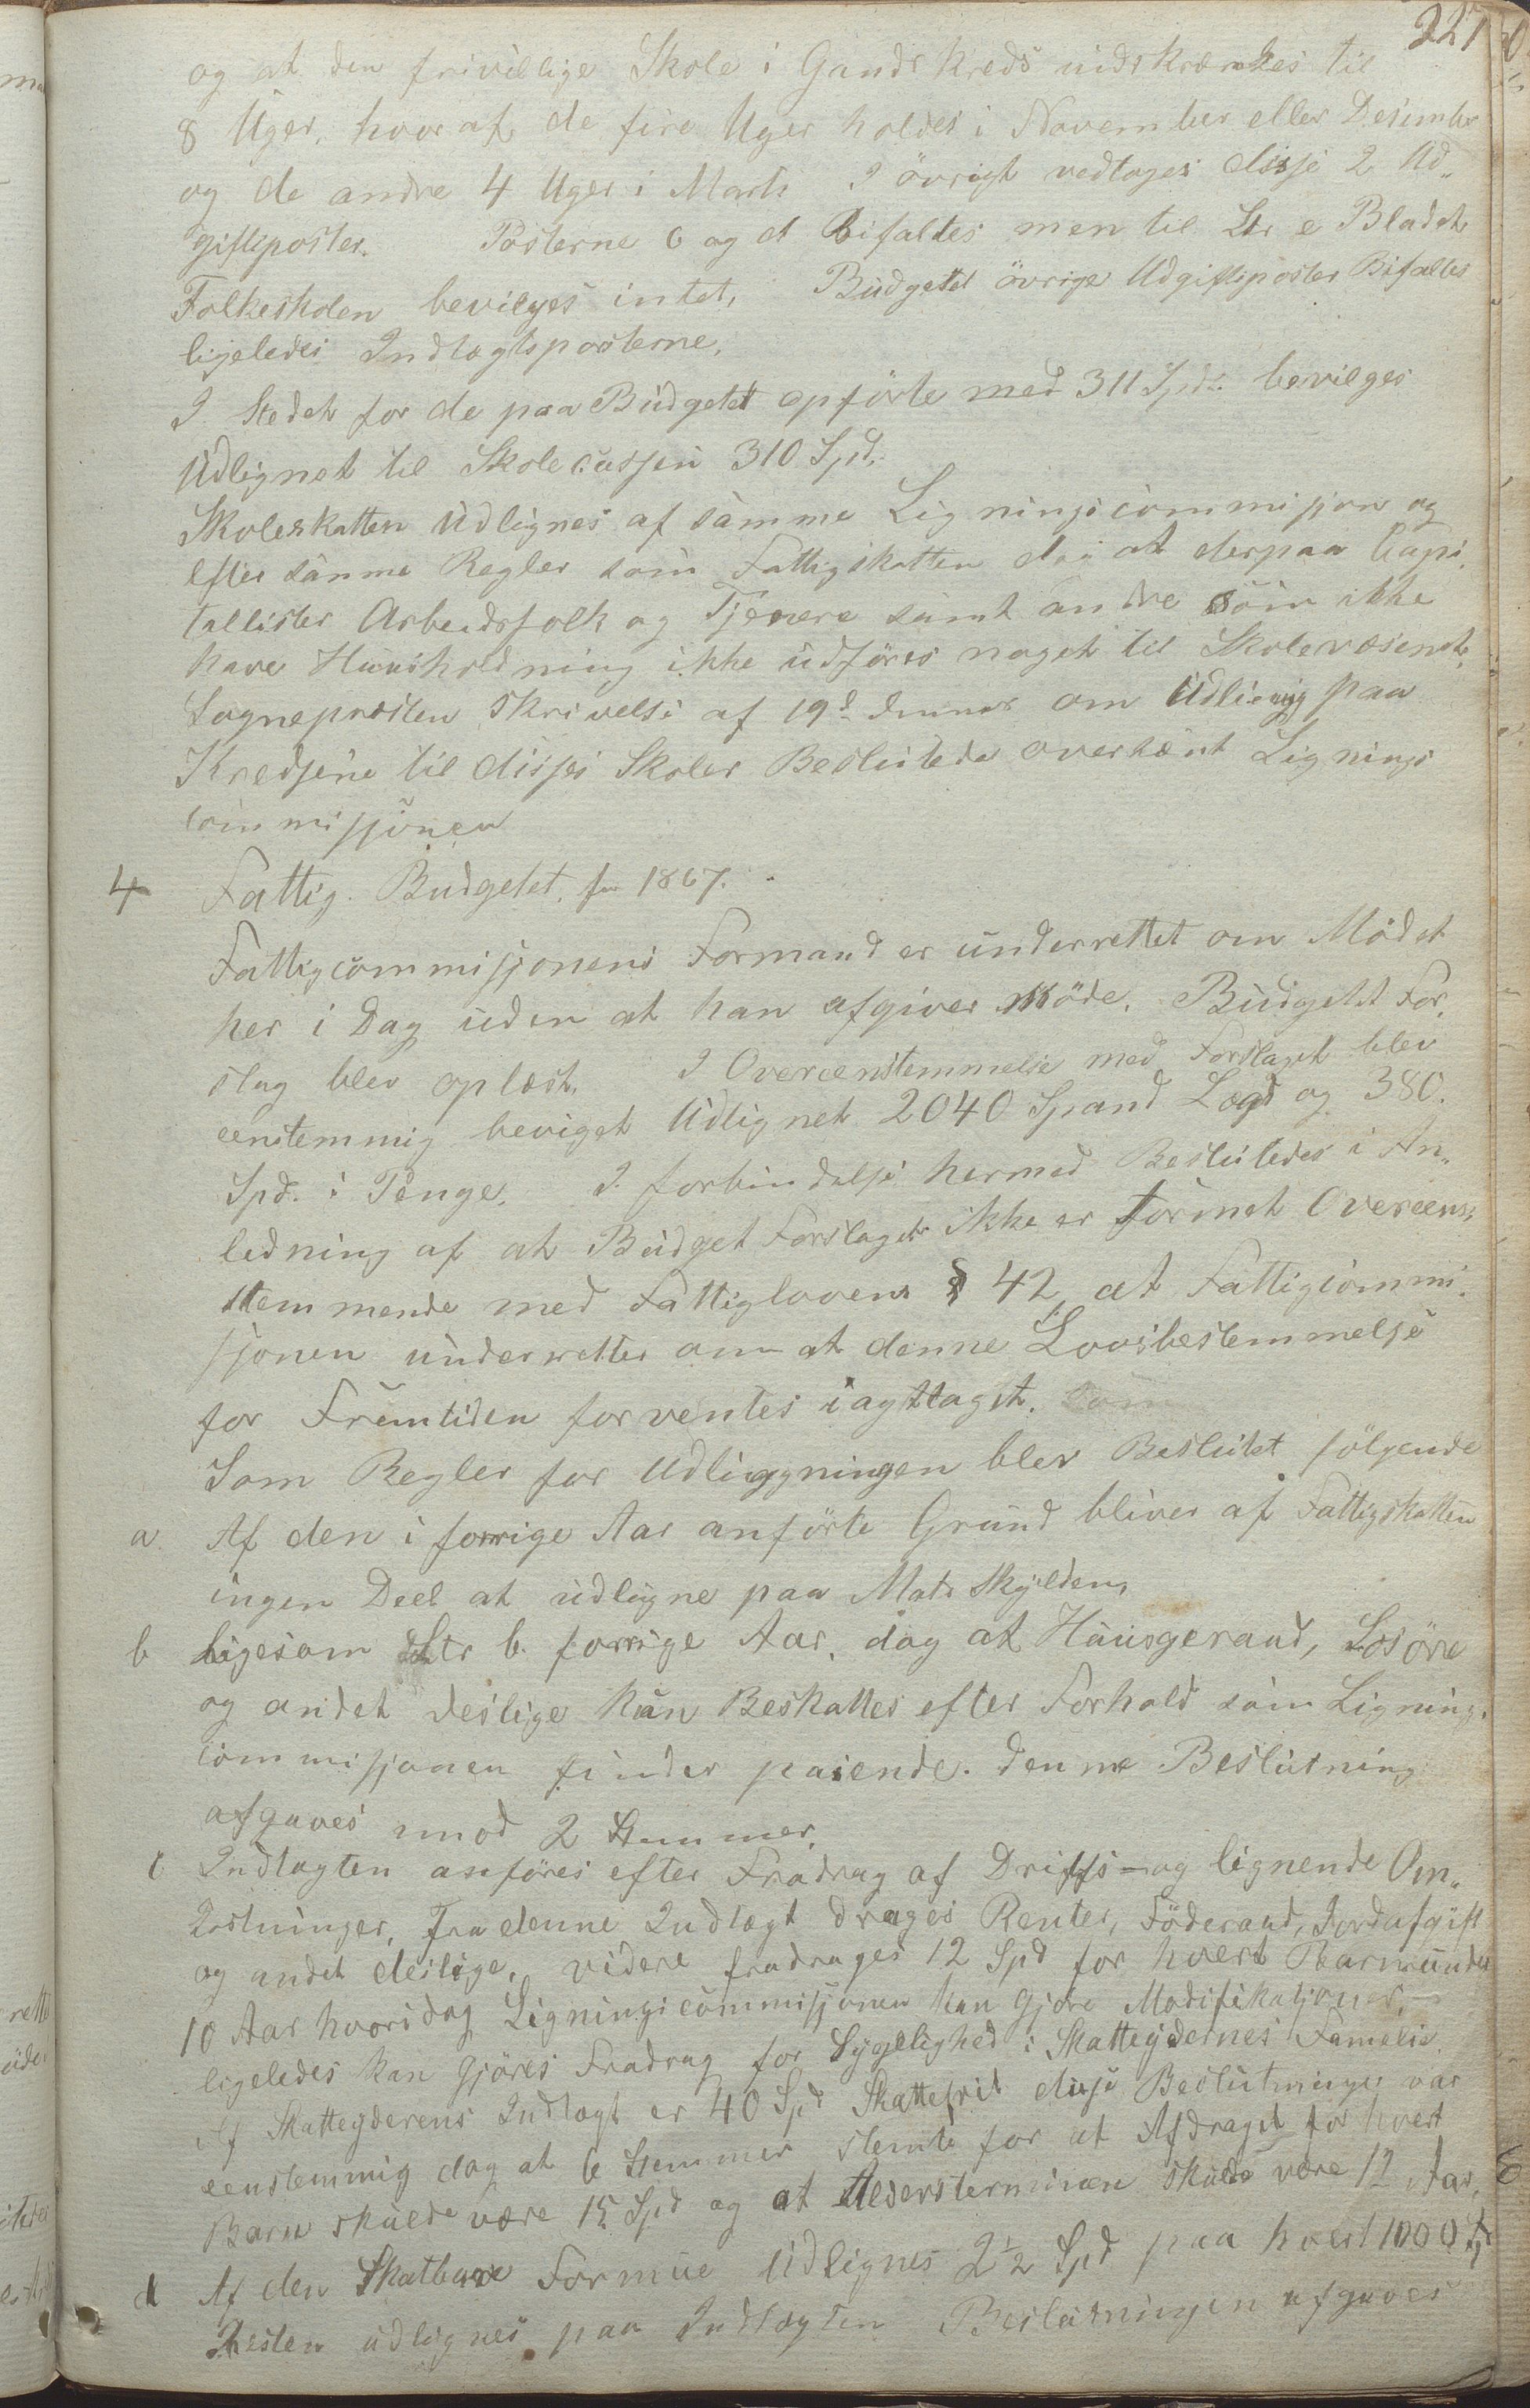 227
og at den frivillige Skole i Gands Kreds indskrænkes til
8 Uger, hvoraf de fire Uger holdes i November eller Desimber
og de andre 4 Uger i Marts I övrigt vedtages disse 2 Ud„
giftsposter. Posterne c og d Bifaltes men til Ltr e Bladet
Folkeskolen beviljes intet, Budgetet övrige Udgiftsposter Bifaltes
ligeledes Indtægtsposterne,
I Stedet for de paa Budgetet opförte med 311 Spd. bevilges
Udlignet til Skolecassen 310 Spd.
Skoleskatten Udlignes af samme Ligningscommisjon og
efter samme Regler som Fattigskatten dog at derpaa Capi,
tallister Arbeidsfolk og Tjenere samt andre som ikke
have Huusholdning ikke udföres noget til Skolevæsenet,
Sognepresten Skrivelse af 19d dennes om Udligning paa
Kredsene til disses Skoler Besluttede oversænt Lignings
commisjonen
4 Fattig. Budgetet for 1867.
Fattigcommisjonens Formand er underrettet om Mödet
her i Dag uden at han afgiver Möde. Budgetet For,
slag blev oplæst. I Overeenstemmelse med Forslaget blev
eenstemmig beviget Udlignet 2040 Spand Lægd og 380.
Spd. i Penge. I forbindelse hermed Besluttedes i An„
ledning af at Budget Forslaget ikke er formet Overeens,
stemmende med Fattiglovens § 42 at Fattigcommi,
sjonen underrettes om at denne Lovsbestemmelse
for Fremtiden forventes iagttaget.
Som Regler for Udligningen blev Beslutet fölgende
a. Af den i forrige Aar anförte Grund bliver af Fattigskatten
ingen Deel at udligne paa Matr Skylden,
b ligesom Ltr b. forrige Aar, dog at Huusgeraad, Lösöre
og andet deslige kan Beskattes efter Forhold som Lignings,
commisjonen finder passende. Denne Beslutning
afgaves mod 2 Stemmer.
c Indtagten anföres efter Fradrag af Drifts- og lignende Om„
kostninger, Fra denne Indtægt drages Renter, Föderaad, Jordafgift
og andet deslige, videre fradrages 12 Spd for hvert Barn under
10 Aar hvori dog Ligningscommisjonen kan Gjöre Modifikatjoner,
ligeledes kan Gjöres Fradrag for Sygelighed i Skatteydernes Famelie.
Af Skatteyderens Indtægt er 40 Spd Skattefrit disse Beslutninger var
eenstemmig dog at 6 Stemmer stemte for at Afdraget for hvert
Barn skulde være 15 Spd og at Aldersterminen skulde være 12 Aar,
d Af den Skatbare Formue Udlignes 2½ Spd paa hvert 1000
Resten udlignes paa Indtægten Beslutningen afgaves